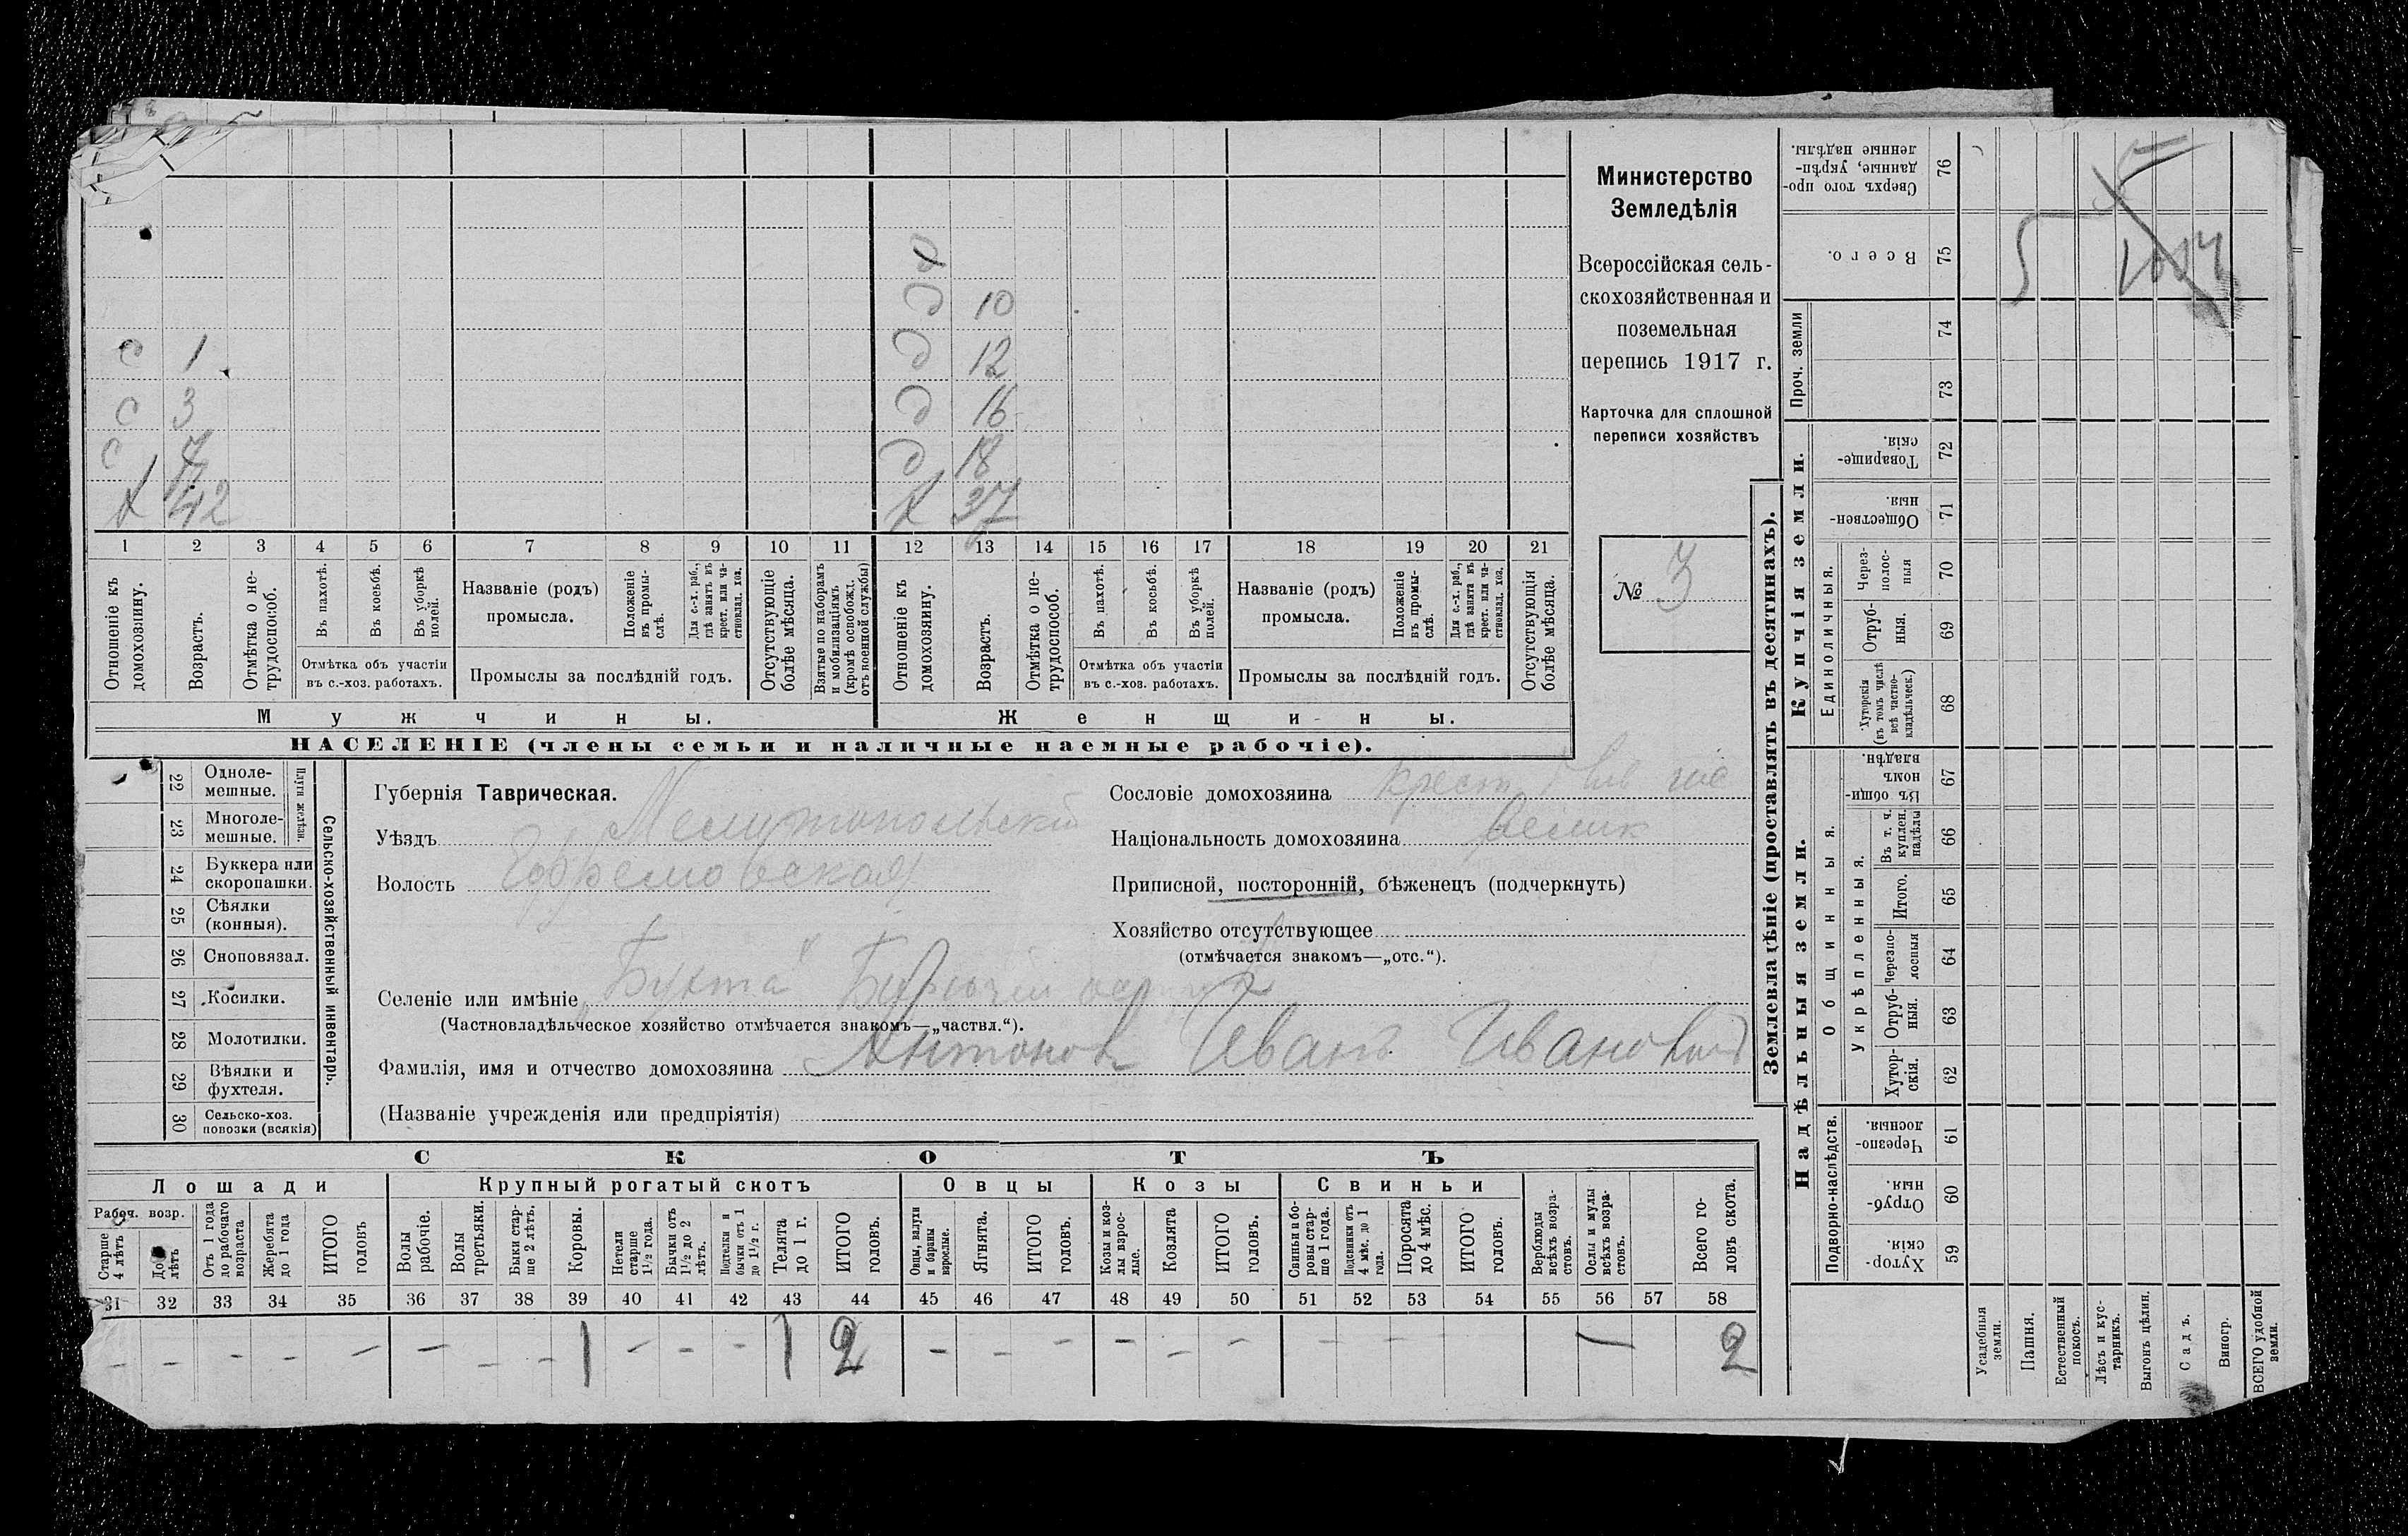 Министерство
Земледѣлія
Всероссійская сель-
скохозяйственная и
поземельная
перепись 1917 г.
Карточка для сплошной
переписи хозяйствъ
№ 3
д
д 10
с 1 д 12
с 3 д 16
с 7 д 18
х 42 х 37
1 2 3 4 5 6 7 8 9 10 11 12 13 14 15 16 17 18 19 20 21
Отношеніе къ домохозяину.
Возрастъ.
Отмѣтка о не-трудоспособ.
Въ пахотѣ.
Въ косьбѣ.
Въ уборкѣ полей.
Отмѣтка объ участіи
въ с.-хоз. работахъ.
Названіе (родъ)
промысла.
Положеніе въ промы-слѣ.
Для с.-х. раб., гдѣ занятъ въ крест. или ча-стновлад. хоз.
Промыслы за послѣдній годъ.
Отсутствующіе болѣе мѣсяца.
Взятые по наборамъ и мобилизаціямъ (кромѣ освобожд. отъ военной службы)
Отношеніе къ домохозяину.
Возрастъ.
Отмѣтка о не-трудоспособ.
Въ пахотѣ.
Въ косьбѣ.
Въ уборкѣ полей.
Отмѣтка объ участіи
въ с.-хоз. работахъ.
Названіе (родъ)
промысла.
Положеніе въ промы-слѣ.
Для с.-х. раб., гдѣ занята въ крест. или ча-стновлад. хоз.
Промыслы за послѣдній годъ.
Отсутствующія болѣе мѣсяца.
Мужчины. Женщины.
НАСЕЛЕНІЕ (члены семьи и наличные наемные рабочіе).
22 Одноле-мешные.
23 Многоле-мешные.
Плуги желѣзн.
24 Буккера или скоропашки.
25 Сѣялки (конныя).
26 Сноповязал.
27 Косилки.
28 Молотилки.
29 Вѣялки и фухтеля.
30 Сельско-хоз. повозки (всякія)
Сельско-хозяйственный инвентарь.
Губернія Таврическая.
Уѣздъ Мелитопольскій
Волость Ефремовская
Сословіе домохозяина крест
Національность домохозяина велик
Приписной, посторонній, бѣженецъ (подчеркнуть)
Хозяйство отсутствующее
(отмѣчается знакомъ—„отс.“).
Селеніе или имѣніе Бухта Бирючій
(Частновладѣльческое хозяйство отмѣчается знакомъ—„частвл.“).
Фамилія, имя и отчество домохозяина Антоновъ Иванъ Ивановъ
(Названіе учрежденія или предпріятія)
СКОТЪ
Лошади Крупный рогатый скотъ Овцы Козы Свиньи
Рабоч. возр.
Старше 4 лѣтъ
До 4 лѣтъ
Отъ 1 года до рабочаго возраста
Жеребята до 1 года
ИТОГО головъ
Волы рабочіе.
Волы третьяки.
Быки стар-ше 2 лѣтъ.
Коровы.
Нетели старше 1½ года.
Бычки отъ 1½ до 2 лѣтъ.
Подтелки и бычки отъ 1 до 1½ г.
Телята до 1 г.
ИТОГО головъ.
Овцы, валухи и бараны взрослые.
Ягнята.
ИТОГО головъ.
Козы и коз-лы взрос-лые.
Козлята
ИТОГО головъ.
Свиньи и бо-ровы стар-ше 1 года.
Подсвинки отъ 4 мѣс. до 1 года.
Поросята до 4 мѣс.
ИТОГО головъ.
Верблюды всѣхъ возра-стовъ.
Ослы и мулы всѣхъ возра-стовъ.
Всего го-ловъ скота.
31 32 33 34 35 36 37 38 39 40 41 42 43 44 45 46 47 48 49 50 51 52 53 54 55 56 57 58
– – – – – – – – 1 – – – 1 2 – – – – – – – – – — 2
Землевладѣніе (проставлять въ десятинахъ).
Купчія земли.
Надѣльныя земли.
Сверхъ того про-данные, укрѣп-ленные надѣлы. 76
Всего. 75
Проч. земли 74
73
Товарище-скія. 72
Обществен-ныя 71
Единоличныя.
Через-полос-ныя 70
Отруб-ныя. 69
Хуторскія (въ томъ числѣ всѣ частно-владѣльческ.) 68
Въ общин-номъ владѣн. 67
Общинныя.
Укрѣпленныя.
Въ т. ч. куплен. надѣлы 66
Итого. 65
Черезпо-лосныя 64
Отруб-ныя. 63
Хутор-скія. 62
Подворно-наслѣдств.
Черезпо-лосныя 61
Отруб-ныя. 60
Хутор-скія. 59
Усадебныя земли.
Пашня.
Естественный покосъ.
Лѣсъ и кус-тарникъ.
Выгонъ цѣлин.
Садъ.
Виногр.
ВСЕГО удобной земли.